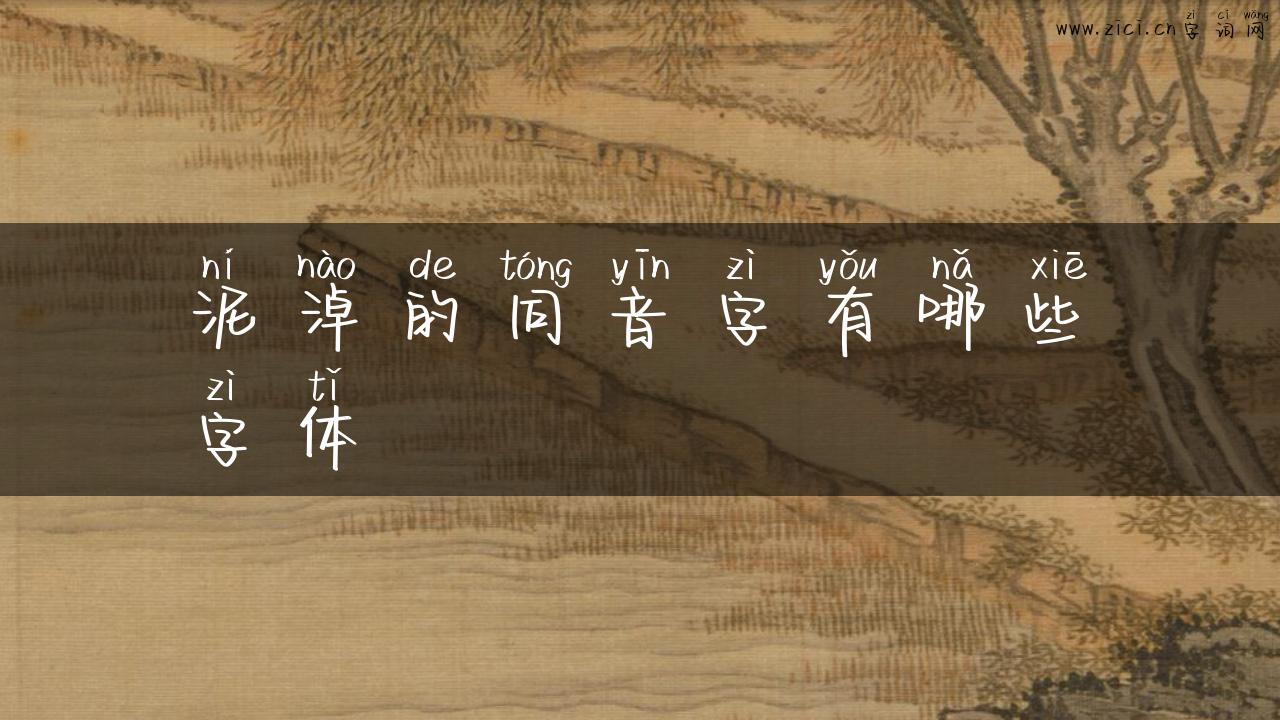 zì cí wǎng
www.zici.cn字词网
ní nào de tóng yīn zì yǒu nǎ xiē
泥淖的同音字有哪些
zì tǐ
字体